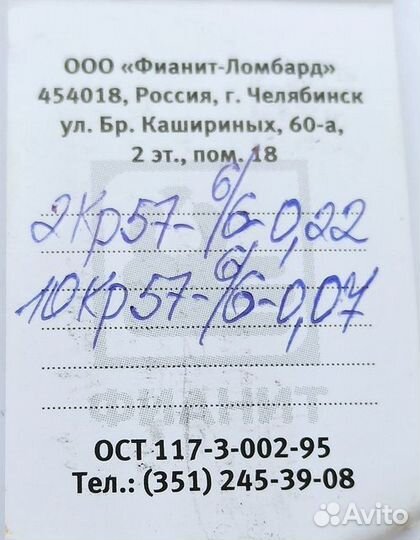 ООО «Фианит-Ломбард»
454018, Россия, г. Челябинск
ул. Бр. Кашириных, 60-а,
2 эт., пом. 18
2Кр57-6/6-0,22
10Кр57-6/6-0,07
ФИАНИТ
ОСТ 117-3-002-95
Тел.: (351) 245-39-08
Avito